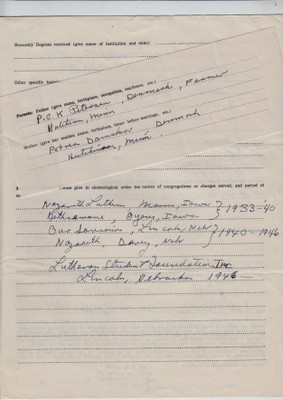 Honorary Degrees received (give name of institution and date):
Other specific
Parents: Father (give name, birthplace, occupation, residence, etc.)
P.C.K. Petersen, Denmark, Farmer
Minn
Mother (give her maiden name, birthplace, home before marriage, etc.)
Petrea Damskov Denmark
Hutchinson, Minn.
give in chronological order the names of congregations or charges served, and period of
Nazareth Luthn, Iowa } 1933-'40
Bethsemane, Iowa
Our Saviour's, Lincoln, Nebr } 1940-1946
Nazareth, Davey, Nebr
Lutheran Student Foundation Inc
Lincoln, Nebraska 1946-